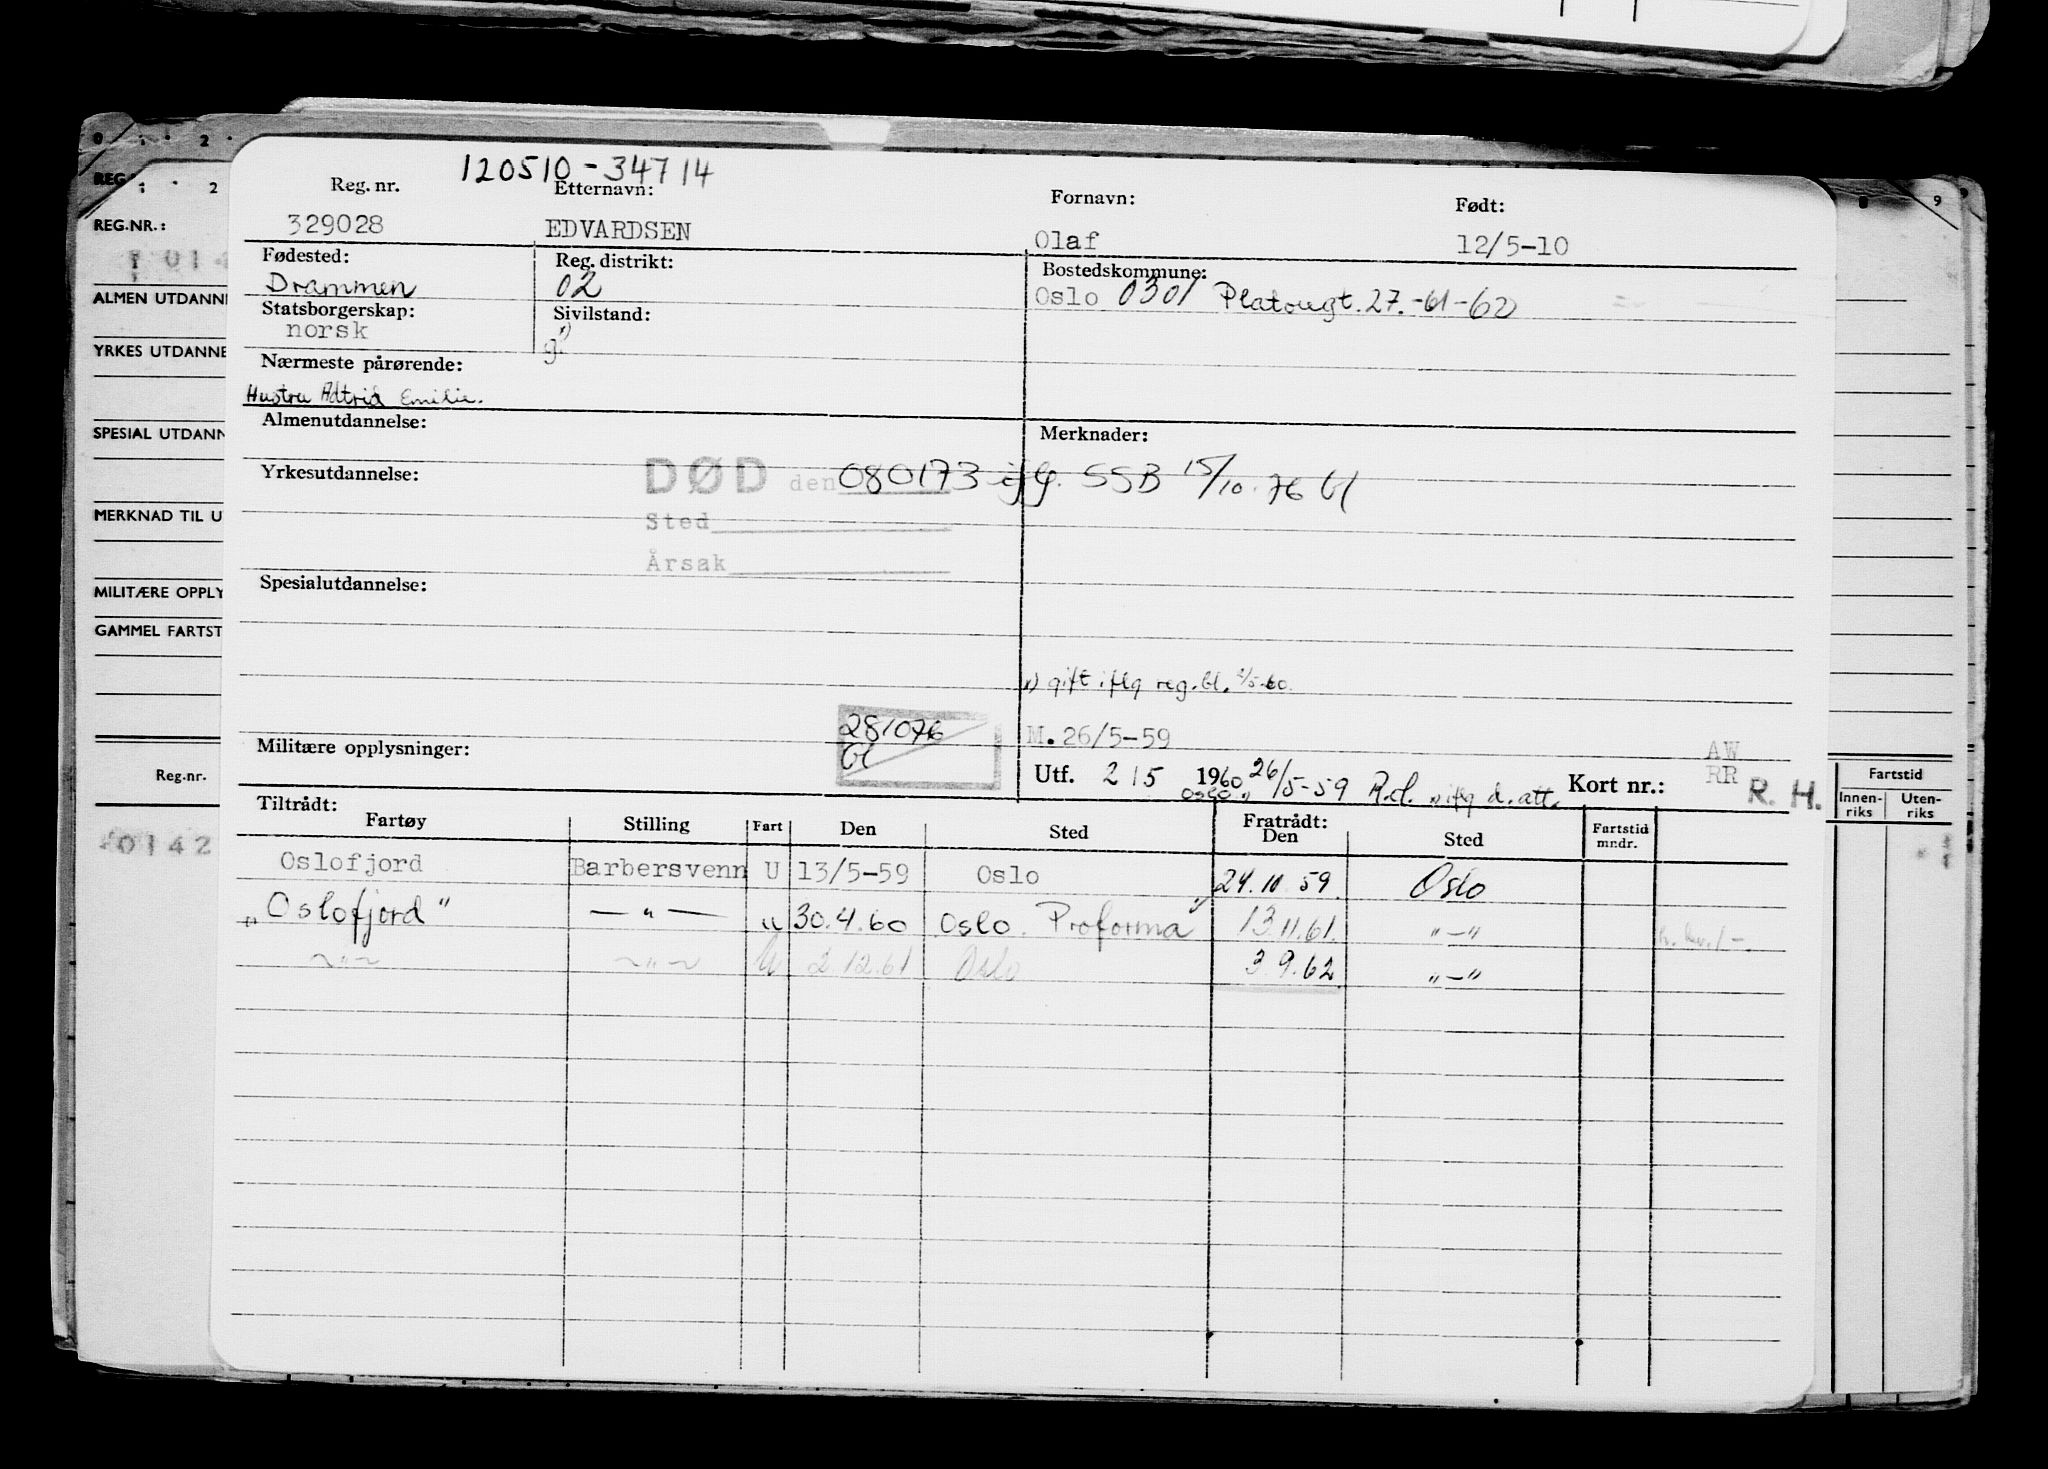 0 1 2
REG
1 2
9
REG.NR.:
014
ALMEN UTDANNE
YRKES UTDANNE
SPESIAL UTDANN
MERKNAD TIL U
MILITÆRE OPPLY
GAMMEL FARTST
Reg.nr.
0142
120510-34714
Reg. nr. Etternavn: Fornavn: Født:
329028 EDVARDSEN Olaf 12/5-10
Fødested: Reg. distrikt: Bostedskommune:
Drammen 02 Oslo 0301 Platougt. 27.-61-62
Statsborgerskap: Sivilstand:
norsk g.")
Nærmeste pårørende:
Hustru Astrid Emilie.
Almenutdannelse: Merknader:
Yrkesutdannelse: DØD den 080173 iflg. SSB 15/10.76 bl
Sted
Årsak
Spesialutdannelse:
") gift iflg reg.bl. 2/5-60.
281076 M.26/5-59
Militære opplysninger: bl AW
Utf. 2/5 1960 26/5-59 R.d. ") iflg d. att. Kort nr.: RR R. H.
Oslo ")
Tiltrådt: Fratrådt:
Fartøy Stilling Fart Den Sted Den Sted Fartstid mndr.
Oslofjord Barbersvenn U 13/5-59 Oslo 24.10.59. Oslo
"Oslofjord" — " — " 30.4.60 Oslo. Proforma ") 13.11.61. "—"
~"~ ~"~ U 2.12.61 Oslo 3.9.62 "—"
Fartstid
Innen-riks Uten-riks